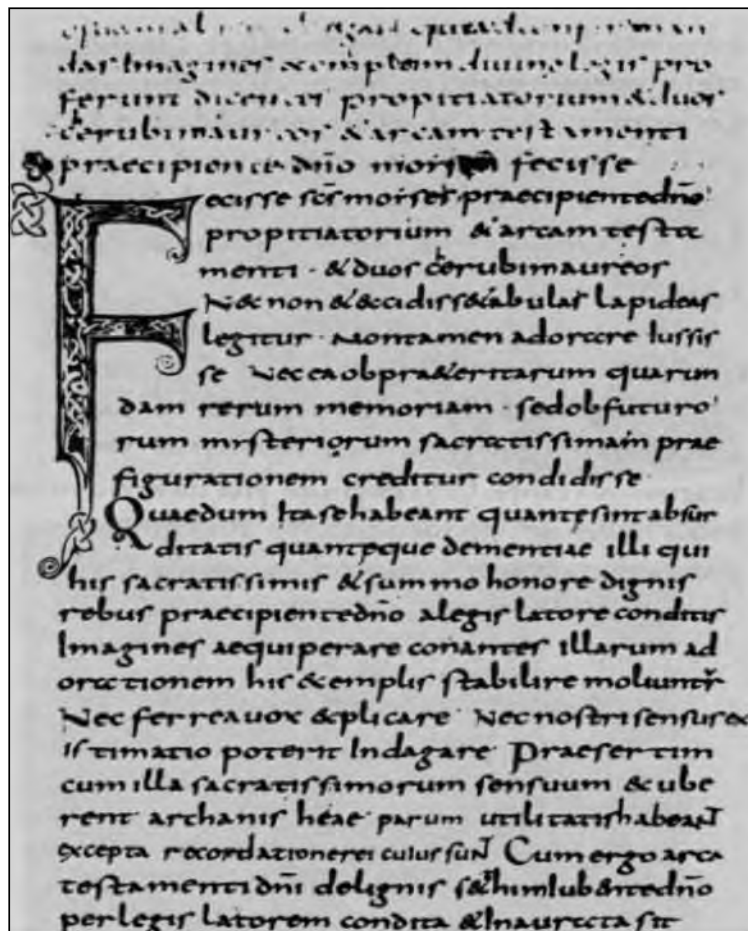 agant
das Imagines exemplum diuine legis pro
ferunt dicentes propitiatorium & duos
cherubim aureos & arcam testamenti
praecipiente dño fecisse
Fecisse scs moises praecipiente dño
propitiatorium & arcam testa
menti · & duos cherubim aureos
Nec non & excidisse tabulas lapideas
legitur · Non tamen adorare Iussis
se Nec ea ob praeteritarum quarun
dam rerum memoriam · sed ob futuro
rum mysteriorum sacratissimam prae
figurationem creditur condidisse
Quae dum Ita se habeant quante sint absur
ditatis quanteque dementiae illi qui
his sacratissimis & summo honore dignis
rebus praecipiente dño a legis latore conditis
Imagines aequiperare conantes illarum ad
orationem his exemplis stabilire moliuntur
Nec ferrea uox explicare Nec nostri sensus ex
istimatio poterit Indagare Praesertim
cum illa sacratissimorum sensuum & ube
rent archanis heae parum utilitatis habeant
excepta recordatione rei cuius sunt Cum ergo arca
testamenti dñi de lignis sethim Iubente dño
per legis latorem condita & Inaurata sit